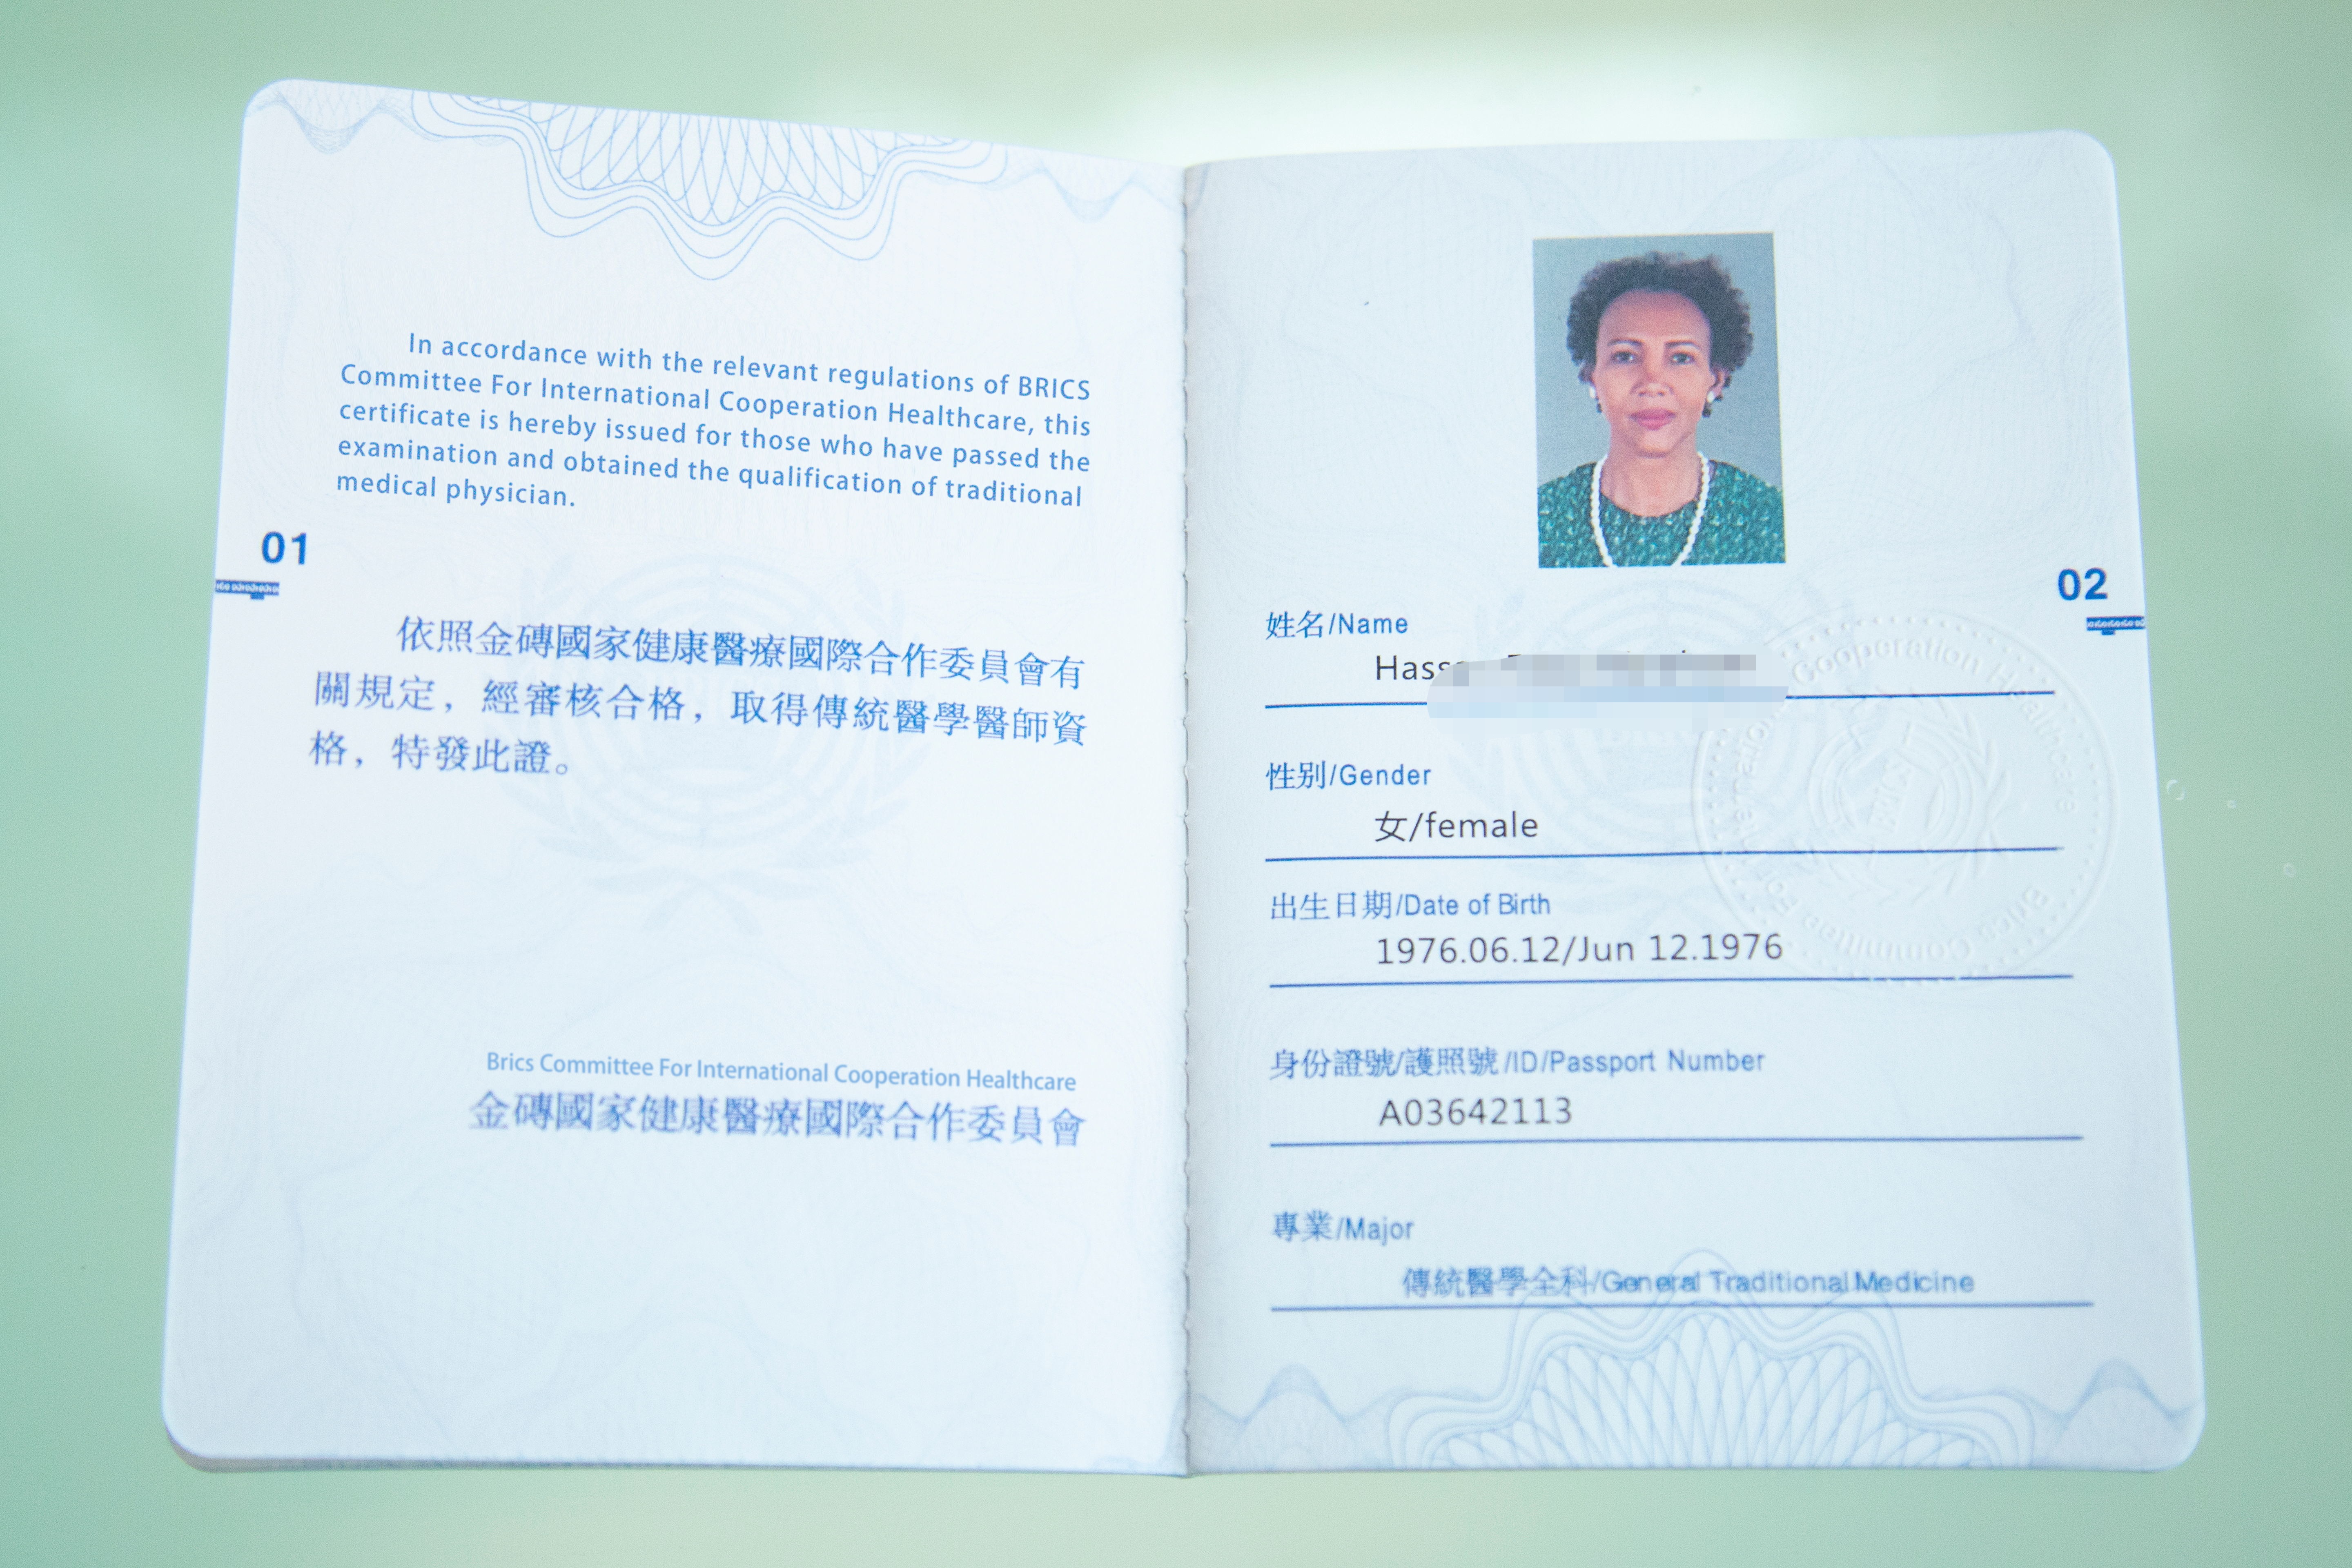 In accordance with the relevant regulations of BRICS
Committee For International Cooperation Healthcare, this
certificate is hereby issued for those who have passed the
examination and obtained the qualification of traditional
medical physician.
01
依照金磚國家健康醫療國際合作委員會有
關規定，經審核合格，取得傳統醫學醫師資
格，特發此證。
Brics Committee For International Cooperation Healthcare
金磚國家健康醫療國際合作委員會
02
姓名/Name
性别/Gender
女/female
出生日期/Date of Birth
1976.06.12/Jun 12.1976
身份證號/護照號/ID/Passport Number
A03642113
專業/Major
傳統醫學全科/General Traditional Medicine
Brics Committee For International Cooperation Healthcare